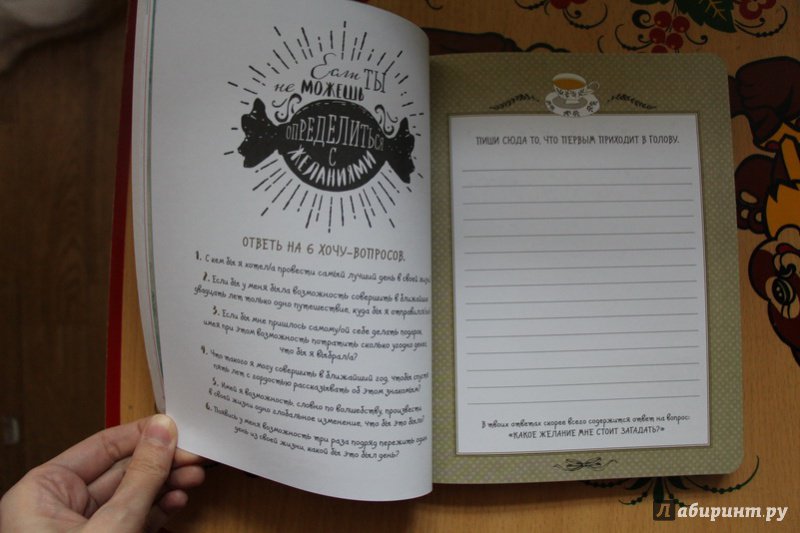 Если ТЫ
не МОЖЕШЬ
опРЕДЕЛИТЬся
С
ЖЕЛАНИЯМИ
ОТВЕТЬ НА 6 ХОЧУ-ВОПРОСОВ.
1. С кем бы я хотел/а провести самый лучший день в своей жизни
2. Если бы у меня была возможность совершить в ближайшие
двадцать лет только одно путешествие, куда бы я
3. Если бы мне пришлось самому/ой себе делать подарок,
имея при этом возможность потратить сколько угодно денег,
что бы я выбрал/а?
4. Что такого я могу совершить в ближайший год, чтобы спустя
пять лет с гордостью рассказывать об этом знакомым?
5. Имей я возможность, словно по волшебству, произвести
в своей жизни одно глобальное изменение, что бы это было?
6. Появись у меня возможность три раза подряд пережить один
день из своей жизни, какой бы это был день?
ПИШИ СЮДА ТО, ЧТО ПЕРВЫМ ПРИХОДИТ В ГОЛОВУ.
В твоих ответах скорее всего содержится ответ на вопрос:
«КАКОЕ ЖЕЛАНИЕ МНЕ СТОИТ ЗАГАДАТЬ?»
Лабиринт.ру